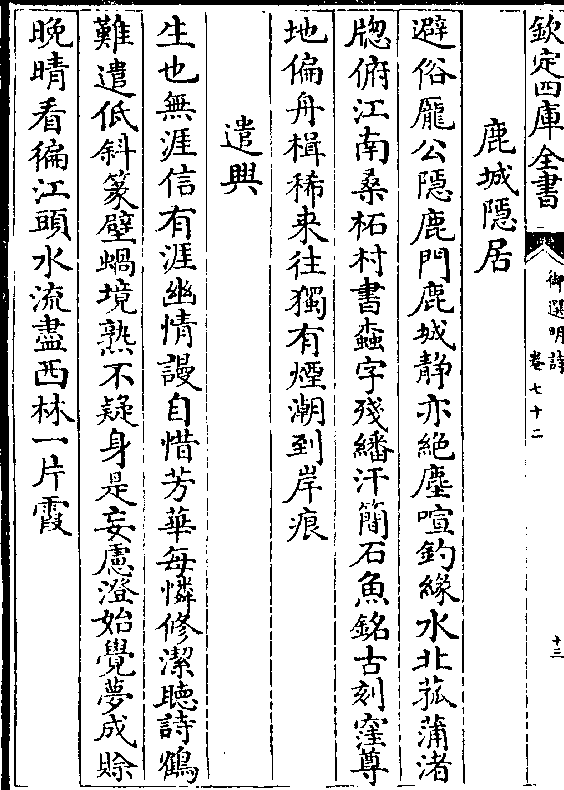 欽定四庫全書
御選明詩
卷七十二
十三
鹿城隱居
避俗龐公隱鹿門鹿城静亦絶塵喧釣緣水北菰蒲渚
牎俯江南桑柘村書蝕字殘繙汗簡石魚銘古刻窪尊
地偏舟楫稀来往獨有煙潮到岸痕
遣興
生也無涯信有涯幽情謾自惜芳華每憐修潔聴詩鶴
難遣低斜篆壁蝸境熟不疑身是妄慮澄始覺夢成賒
晚晴看徧江頭水流盡西林一片霞